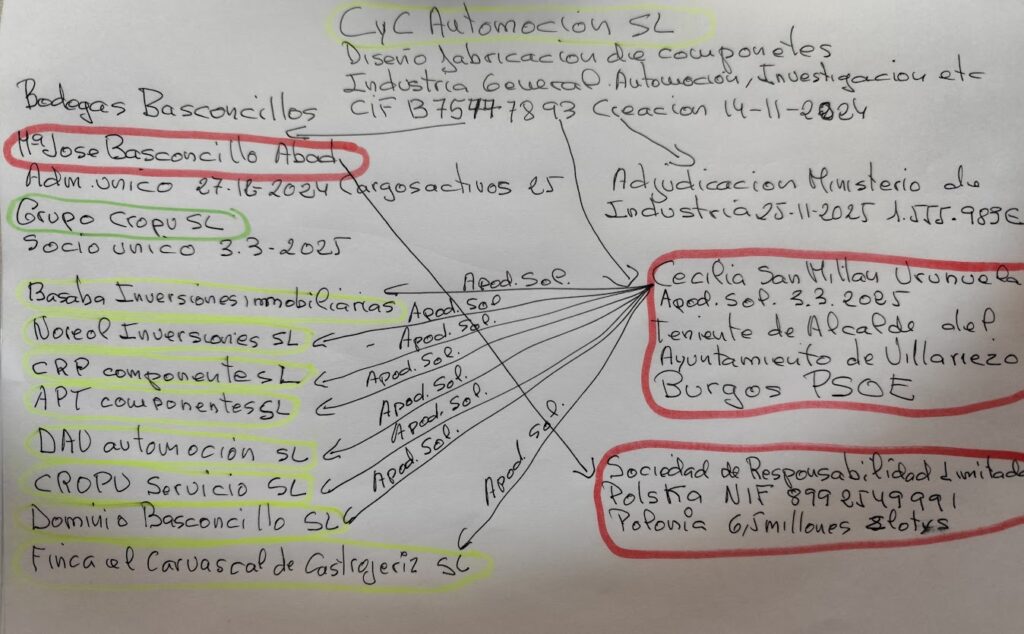 CyC Automoción SL
Diseño fabricacion de componetes
Industria General. Automoción, Investigacion etc
CiF B75477893 Creacion 14-11-2024
Bodegas Basconcillos
Mª Jose Basconcillo Abad
Adm. único 27.12-2024 Cargos activos 25
Grupo Cropu SL
Socio unico 3.3-2025
Adjudicacion Ministerio de
Industria 25-11-2025 1.555.983€
Basaba Inversiones immobiliarias
Noreol Inversiones SL
CRP componente SL
APT componentes SL
DAU automoción SL
CROPU Servicio SL
Dominio Basconcillo SL
Finca el Carvascal de Castrojeriz SL
Apod. Sol.
Apod. Sol
Apod. Sol.
Apod. Sol.
Apod. Sol.
Apod. Sol.
Apod. Sol.
Apod. Sol.
Cecilia San Millan Urunuela
Apod. Sol. 3.3.2025
Teniente de Alcalde del
Ayuntamiento de Villariezo
Burgos PSOE
Sociedad de Responsabilidad Limitada
Polska NIF 8992549991
Polonia 6,5 millones Slotys